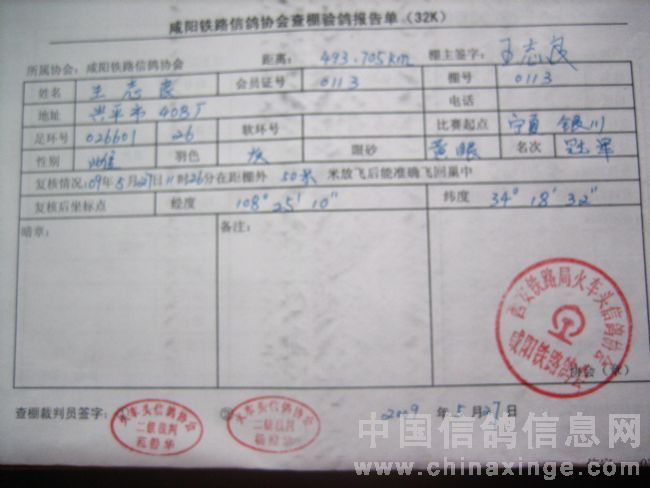 咸阳铁路信鸽协会查棚验鸽报告单(32K)
所属协会:咸阳铁路信鸽协会 距离:493.705km 棚主签字:王志良
姓名 王志良 会员证号 0113 棚号 0113
地址 兴平市408厂 电话
足环号 026601 26 软环号 比赛起点 宁夏 银川
性别 雄 羽色 灰 眼砂 黄眼 名次 冠军
复核情况:09年5月27日11时26分在距棚外 50米 米放飞后能准确飞回巢中
复核后坐标点 经度 108° 25′ 10″ 纬度 34° 18′ 32″
暗章: 备注:
西安铁路局火车头信鸽协会
咸阳铁路鸽会
协会(章)
查棚裁判员签字:
火车头信鸽协会
二级裁判
火车头信鸽协会
二级裁判
2009 年 5 月 27 日
中国信鸽信息网
www.chinaxinge.com